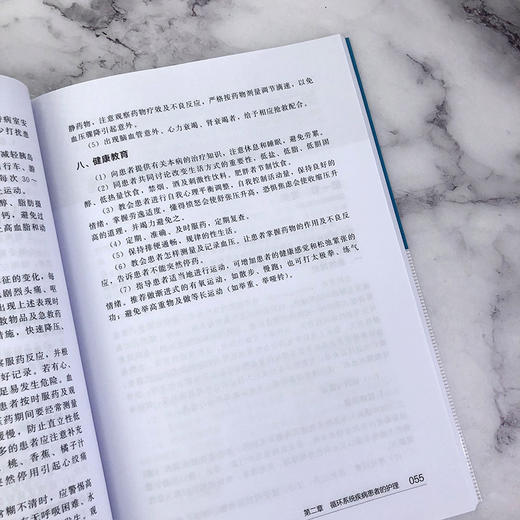 护病室安
少打扰患
减轻胰岛
自行车、游
每次 30～
运动。
醇、脂肪摄
钙，避免过
止高血脂和动
征的变化，每
剧烈头痛、呕
出现上述表现时
救物品及急救药
措施，快速降压、
客服药反应，并根
好记录。若有心
足易发生危险。
患者按时服药及观
药期间要经常测量
缓慢，防止直立性低
多的患者应注意补充
、桃、香蕉、橘子汁
突然停用引起心绞痛
常糊不清时，应警惕高
有无呼吸困难、水
静药物，注意观察药物疗效及不良反应，严格按药物剂量调节滴速，以免
血压骤降引起意外。
（5）出现脑血管意外、心力衰竭、肾衰竭者，给予相应抢救配合。
八、健康教育
（1）向患者提供有关本病的治疗知识，注意休息和睡眠，避免劳累。
（2）同患者共同讨论改变生活方式的重要性，低盐、低脂、低胆固
醇、低热量饮食，禁烟、酒及刺激性饮料，肥胖者节制饮食。
（3）教会患者进行自我心理平衡调整，自我控制活动量，保持良好的
情绪，掌握劳逸适度，懂得愤怒会使舒张压升高，恐惧焦虑会使收缩压升
高的道理，并竭力避免之。
（4）定期、准确、及时服药，定期复查。
（5）保持排便通畅，规律的性生活。
（6）教会患者怎样测量及记录血压。让患者掌握药物的作用及不良反
应，告诉患者不能突然停药。
（7）指导患者适当地进行运动，可增加患者的健康感觉和松弛紧张的
情绪。推荐做渐进式的有氧运动，如散步、慢跑，也可打太极拳、练气
功；避免举高重物及做等长运动（如举重、举哑铃）。
第二章 循环系统疾病患者的护理 055